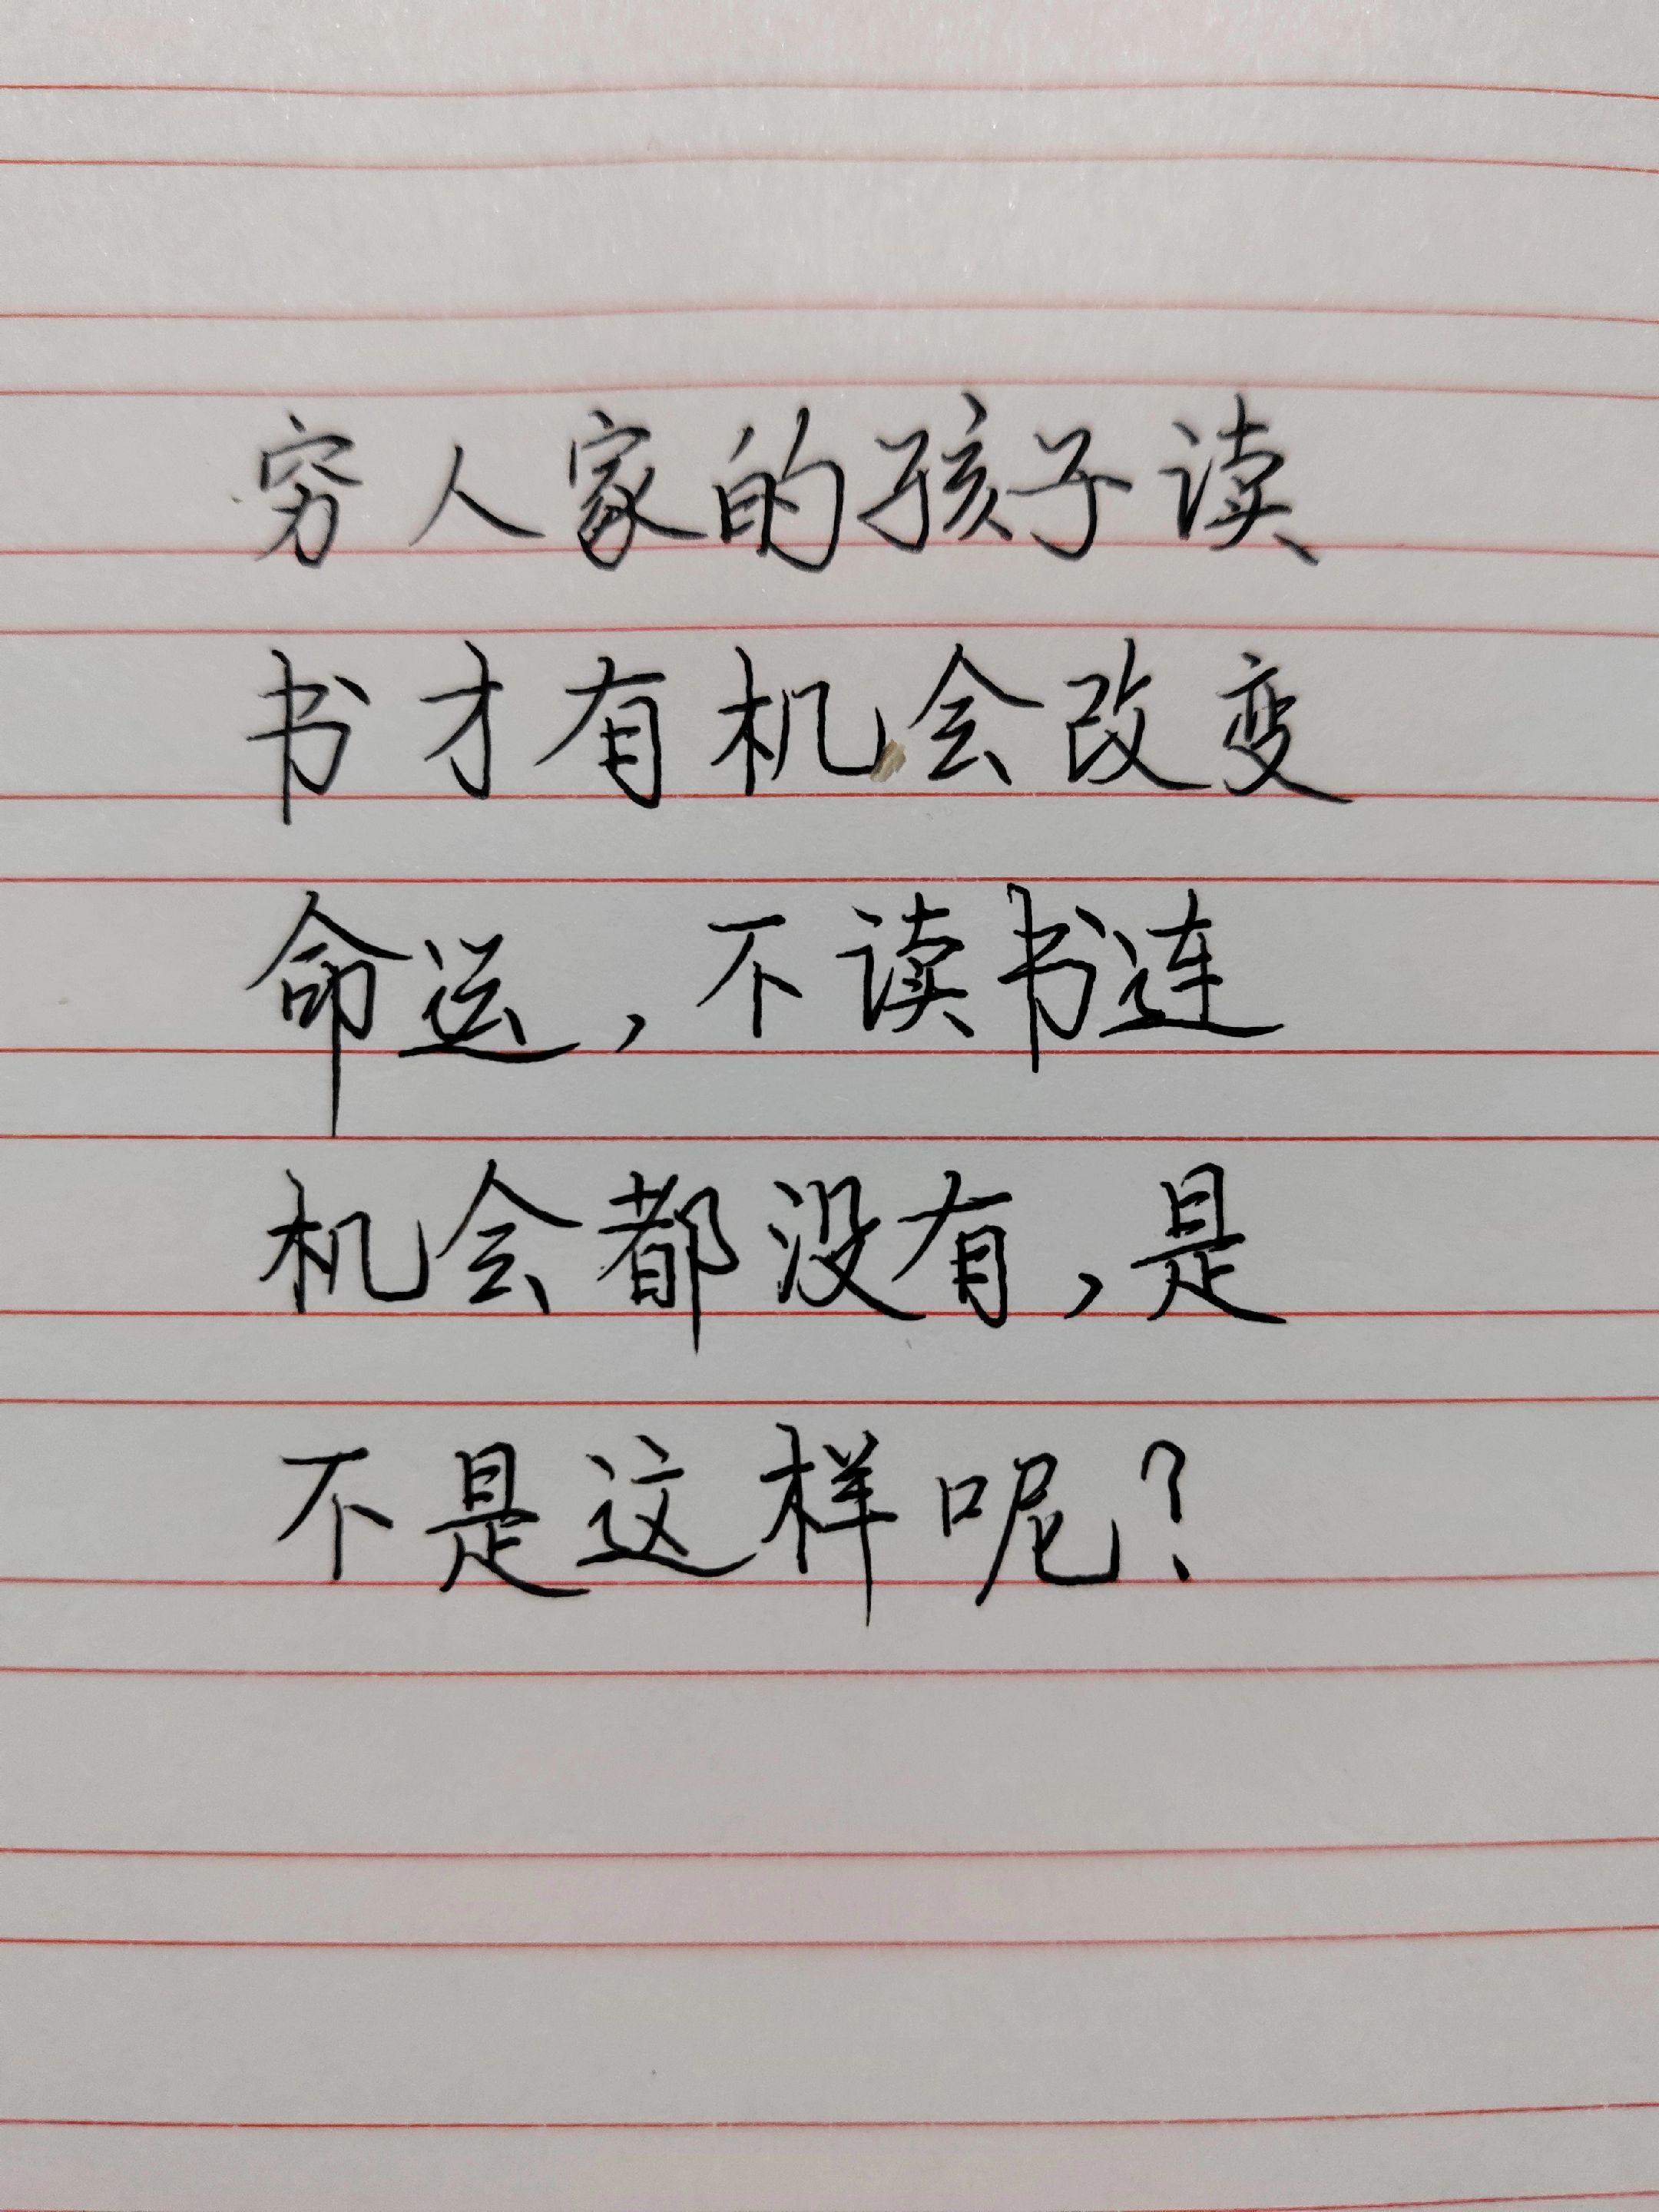 穷人家的孩子读
书才有机会改变
命运,不读书连
机会都没有,是
不是这样呢?